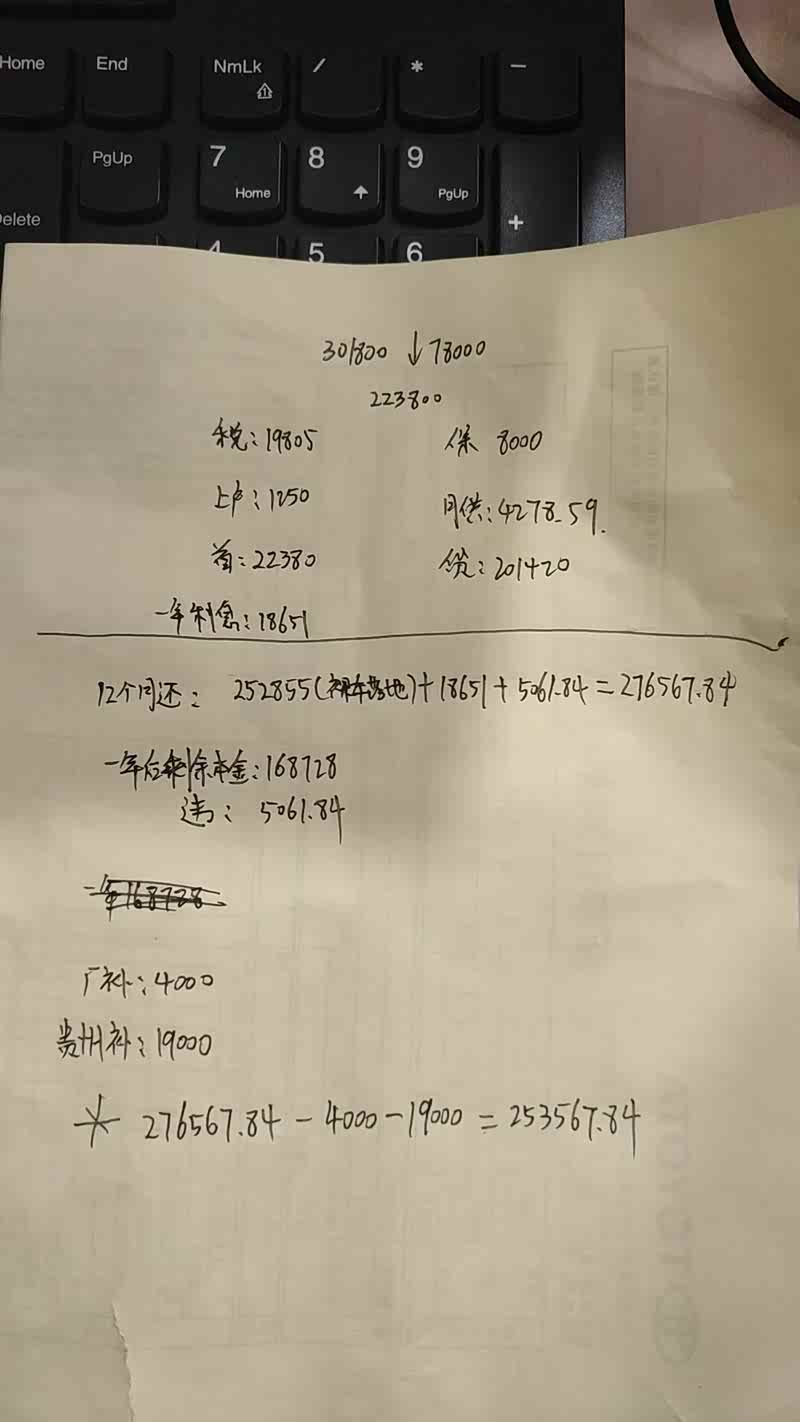 Home End NmLk / * -
PgUp 7 Home 8 9 PgUp
Delete +
4 5 6
301800 ↓78000
223800
税:19805 保 8000
上户:1250 月供:4278.59.
首:22380 贷:201420
一年利息:18651
12个月还: 252855(裸车落地)+18651+5061.84=276567.84
一年后剩余本金:168728
违: 5061.84
一年168728
厂补:4000
贵州补:19000
* 276567.84-4000-19000=253567.84